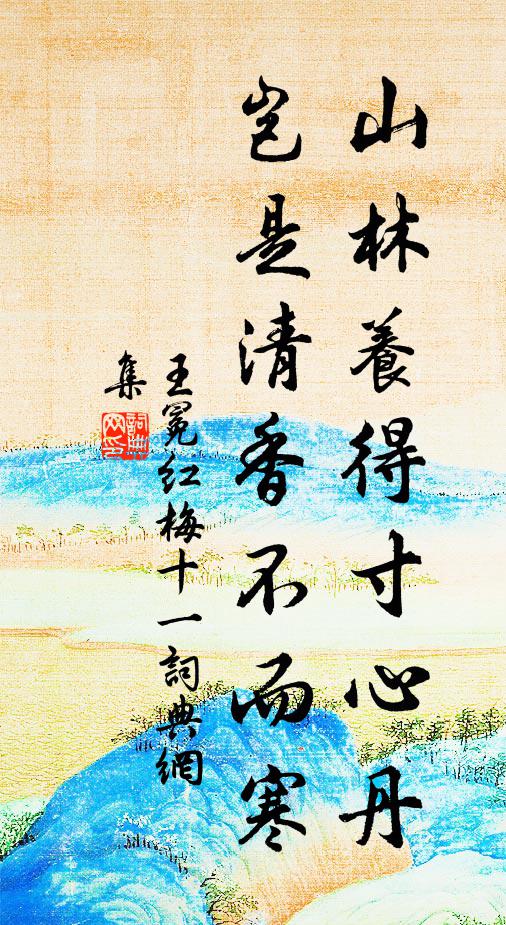 山林養得寸心丹
豈是清香不而寒
王冕红梅十一詞典網
集
詞典網印